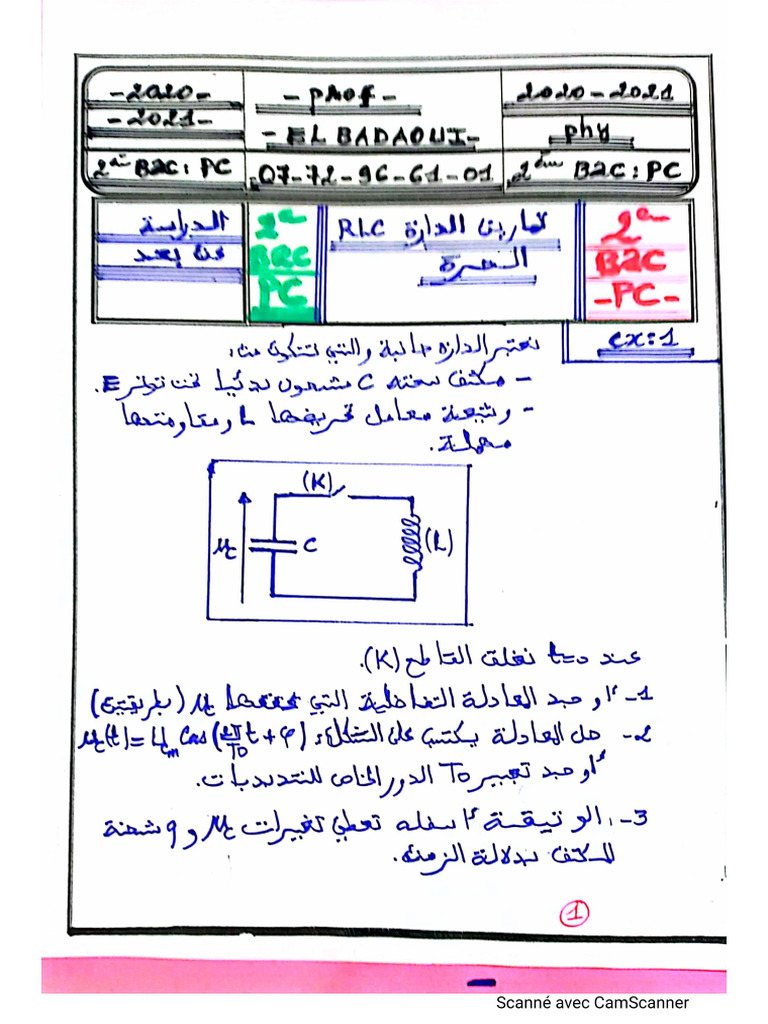 -2020-
-2021-
- PROF -
- EL BADAOUI -
2020-2021
phy
2ème BAC: PC
07-72-96-61-01
2ème BAC: PC
الدراسة
عن بعد
2ème
BAC
PC
تمارين الدارة RLC
الحرة
2ème
BAC
-PC-
ex:1
نعتبر الدارة جانبه والتي تتكون من:
- مكثف سعته C مشحون بدئيا تحت توتر E.
- وشيعة معامل تحريضها L ومقاومتها
مهملة.
(K)
uc
C
(L)
عند t=0 نغلق القاطع (K).
1- أوجد المعادلة التفاضلية التي يحققها uc (بطريقتين)
2- حل المعادلة يكتب على الشكل: uc(t)=Um cos(2π/T0 t + φ)
أوجد تعبير T0 الدور الخاص للتذبذبات.
3- الوثيقة أسفله تعطي تغيرات uc و q شحنة
المكثف بدلالة الزمن.
1
Scanné avec CamScanner